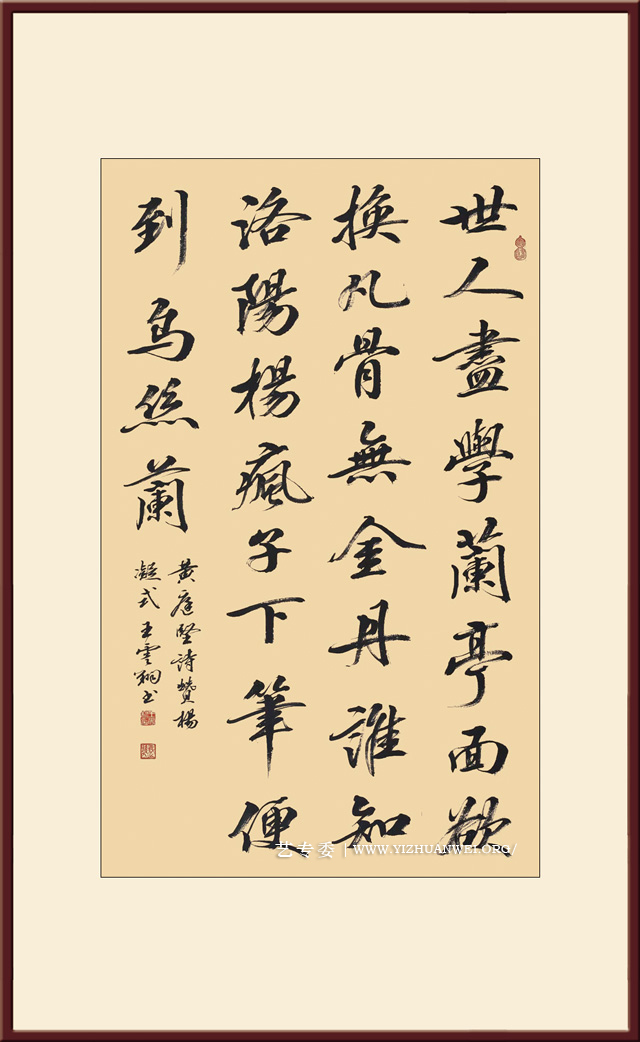 世人盡學蘭亭面欲
換凡骨無金丹誰知
洛陽楊瘋子下筆便
到烏絲蘭
黃庭堅詩贊楊
凝式王雲翔書
艺专委 | WWW.YIZHUANWEI.ORG/